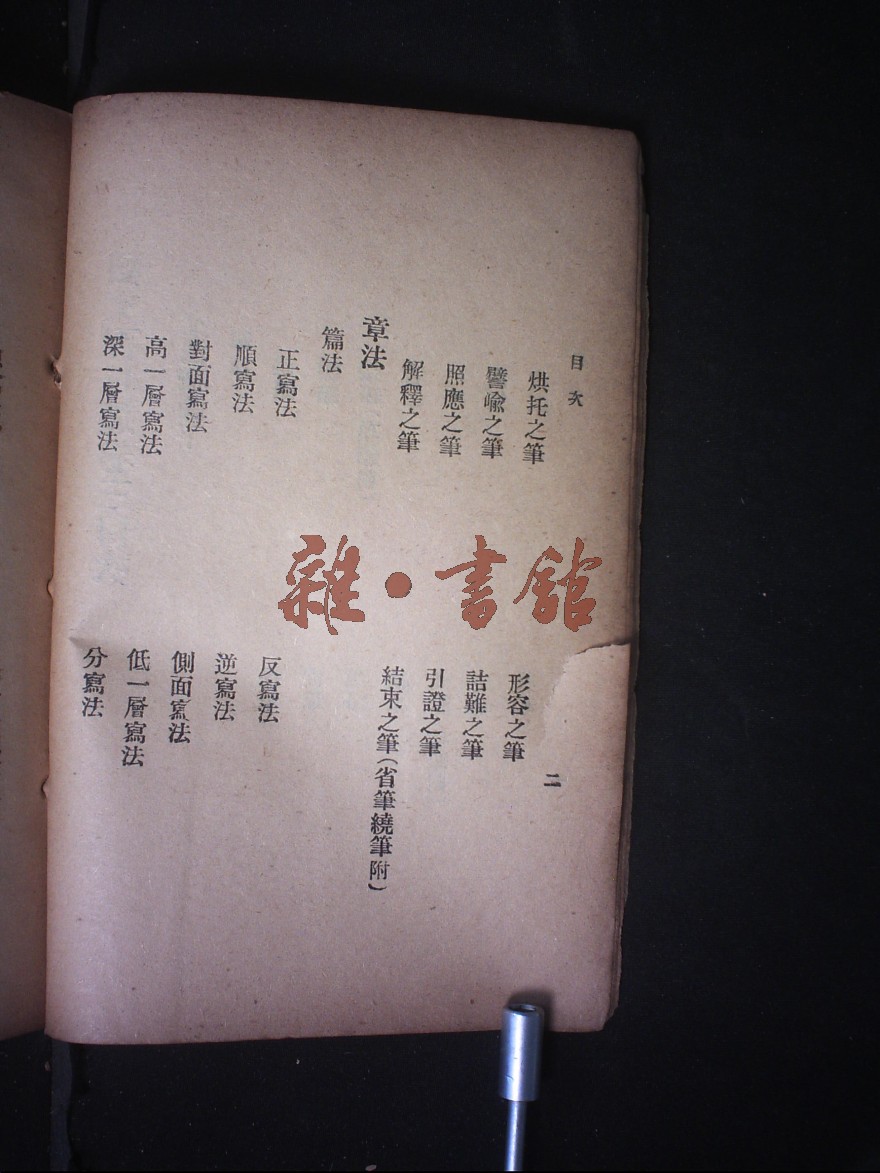 目次
二
烘托之筆
形容之筆
譬喩之筆
詰難之筆
照應之筆
引證之筆
解釋之筆
結束之筆(省筆繞筆附)
章法
篇法
正寫法
反寫法
順寫法
逆寫法
對面寫法
側面寫法
高一層寫法
低一層寫法
深一層寫法
分寫法
雜·書館